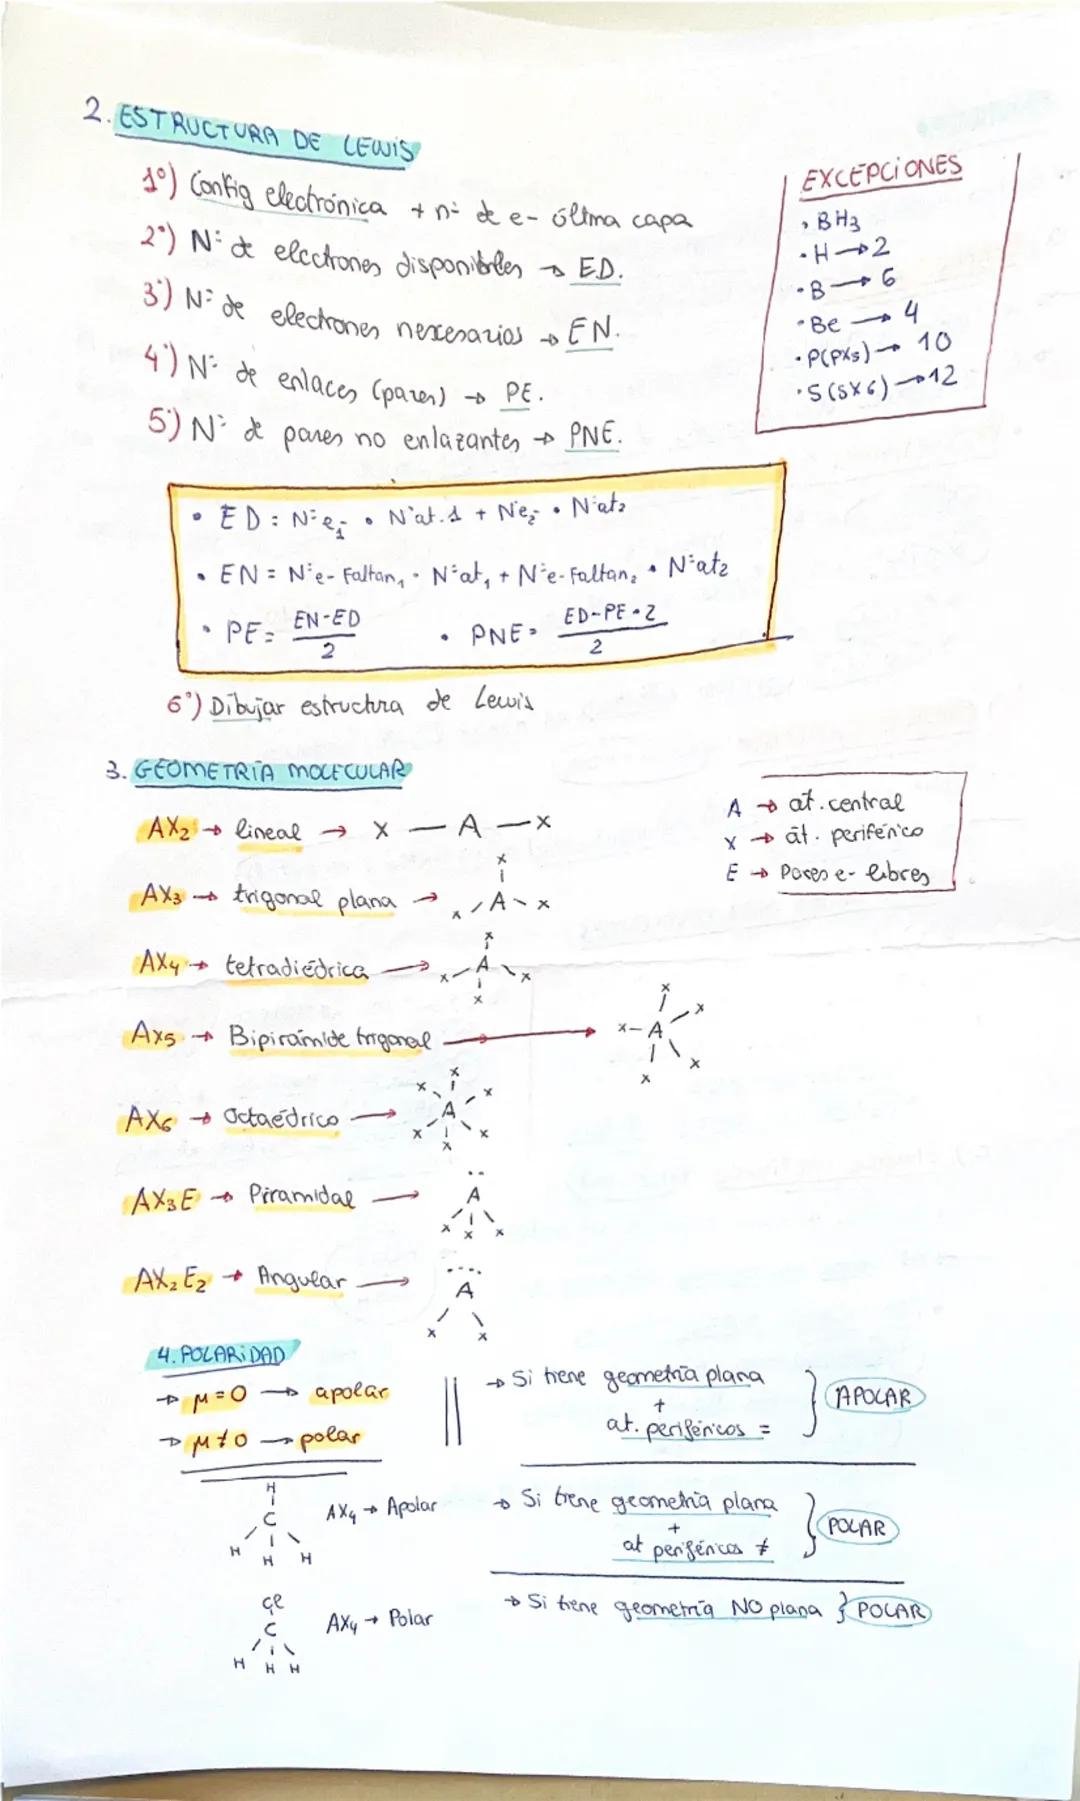 2. ESTRUCTURA DE LEWIS
1º) Config electrónica + nº de e- última capa
2º) Nº de electrones disponibles → ED.
3º) Nº de electrones nexcesarios → EN.
4º) Nº de enlaces (pares) → PE.
5º) Nº de pares no enlazantes → PNE.
EXCEPCIONES
· BH3
· H → 2
· B → 6
· Be → 4
· P(PX5) → 10
· S(SX6) → 12
• ED: Nº e-1 • Nºat.1 + Nºe2- • Nºat2
• EN = Nºe- Faltan1 · Nºat1 + Nºe- Faltan2 • Nºat2
• PE = EN-ED / 2
• PNE = ED-PE·2 / 2
6º) Dibujar estructura de Lewis
3. GEOMETRÍA MOLECULAR
A → at. central
X → át. periférico
E → Pares e- libres
AX2 → lineal → X — A — X
AX3 → trigonal plana →
X
X / A \ X
AX4 → tetradiédrica →
X
X A X
X
AX5 → Bipirámide trigonal →
X
X
X - A
X X
AX6 → Octaédrico →
X X X
A
X X X
AX3E → Piramidal →
..
A
X X X
AX2E2 → Angular →
....
A
X X
4. POLARIDAD
→ μ=0 → apolar
→ μ≠0 → polar
→ Si tiene geometría plana
+
at. periféricos =
} APOLAR
→ Si tiene geometría plana
+
at periféricos ≠
} POLAR
→ Si tiene geometría NO plana } POLAR
H
C
H H H
AX4 → Apolar
Cl
C
H H H
AX4 → Polar